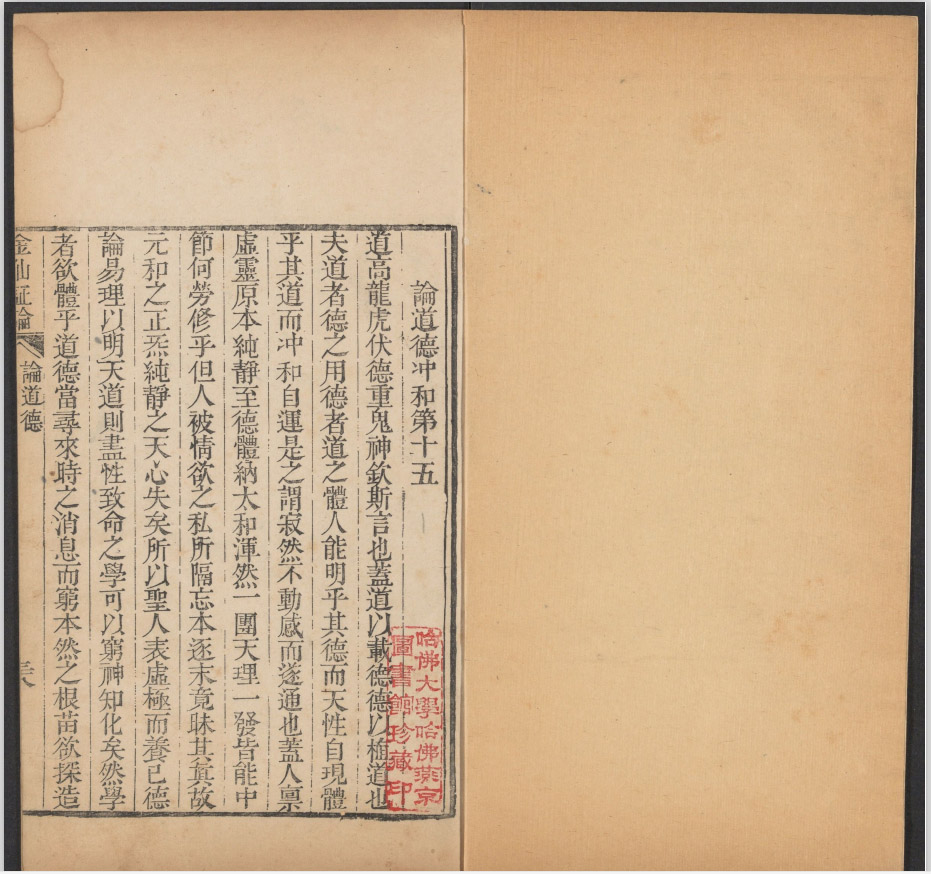 論道德冲和第十五
道高龍虎伏德重鬼神欽斯言也蓋道以載德德以植道也
夫道者德之用德者道之體人能明乎其德而天性自現體
乎其道而冲和自運是之謂寂然不動感而遂通也蓋人禀
虛靈原本純靜至德體納太和渾然一團天理一發皆能中
節何勞修乎但人被情欲之私所隔忘本逐末竟昧其眞故
元和之正炁純靜之天心失矣所以聖人表虛極而養已德
論易理以明天道則盡性致命之學可以窮神知化矣然學
者欲體乎道德當尋來時之消息而窮本然之根苗欲探造
金仙証論
論道德
哈佛大學哈佛燕京
圖書館珍藏印